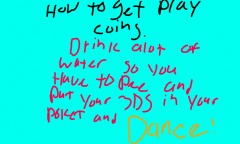 How to get play
coins.
Drink alot of
water so you
Have to Pee and
Put your 3DS in your
Poket and Dance!